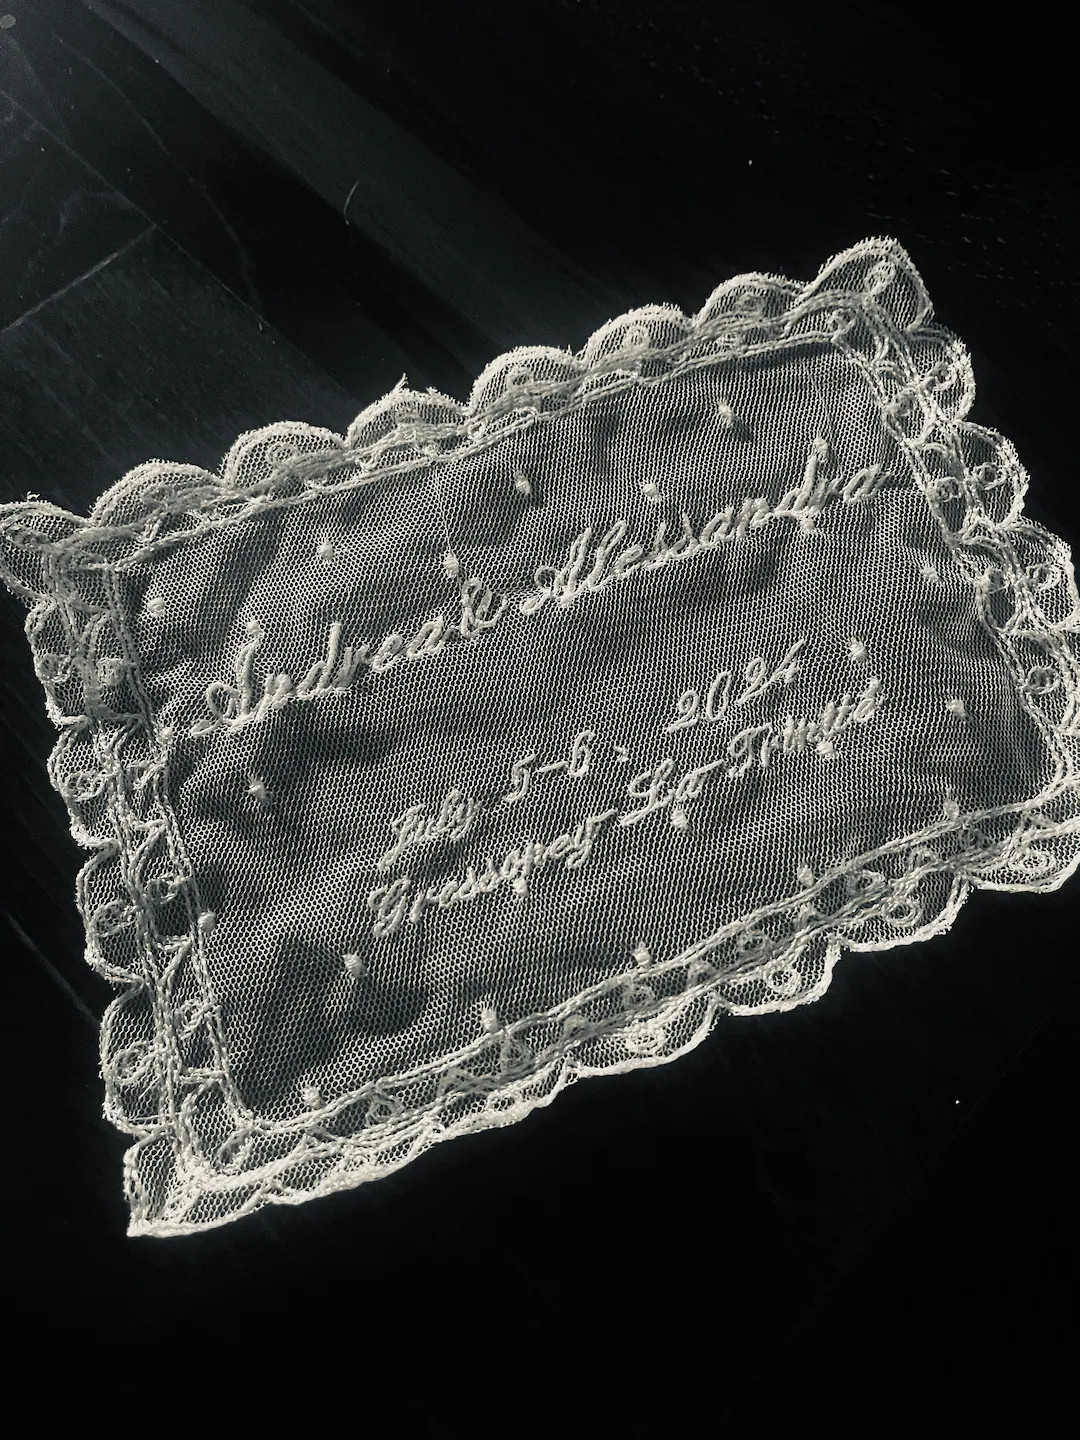 Andrea & Alessandra
July 5-6, 2024
Gressoney La Trinité